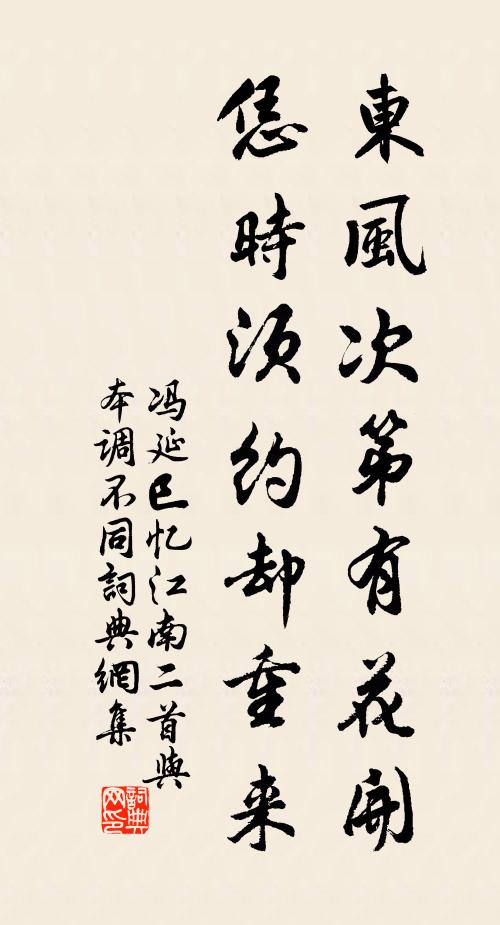 東風次第有花開
恁時須約却重来
冯延巳忆江南二首與
本调不同詞典網集
詞典
网印